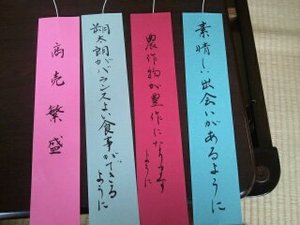 素晴しい出会いがあるように
農作物が豊作になります
ように
翔太朗がバランスよい食事ができる
ように
商売繁盛